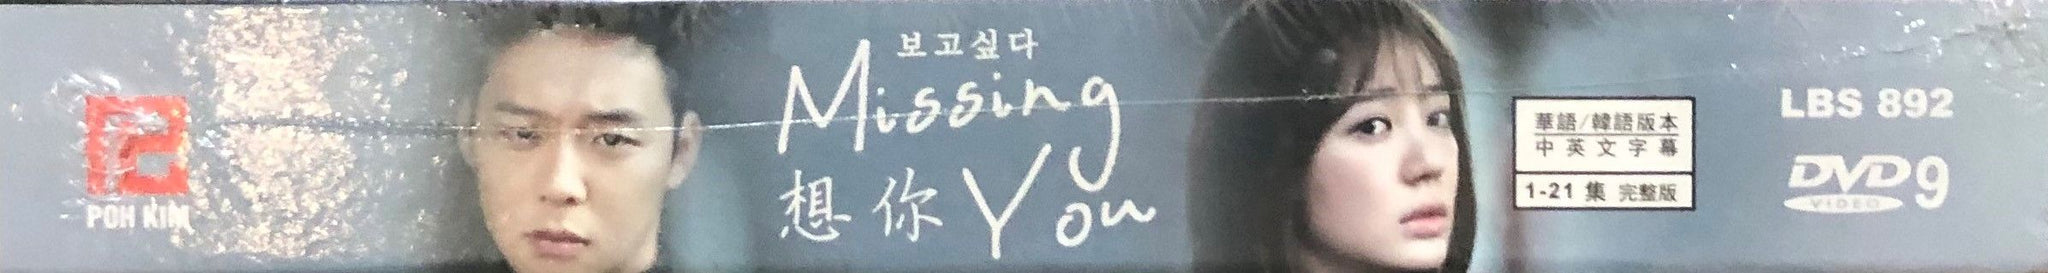 POH KIM
보고싶다
Missing
想你 You
華語/韓語版本
中英文字幕
1-21 集 完整版
LBS 892
DVD 9
VIDEO